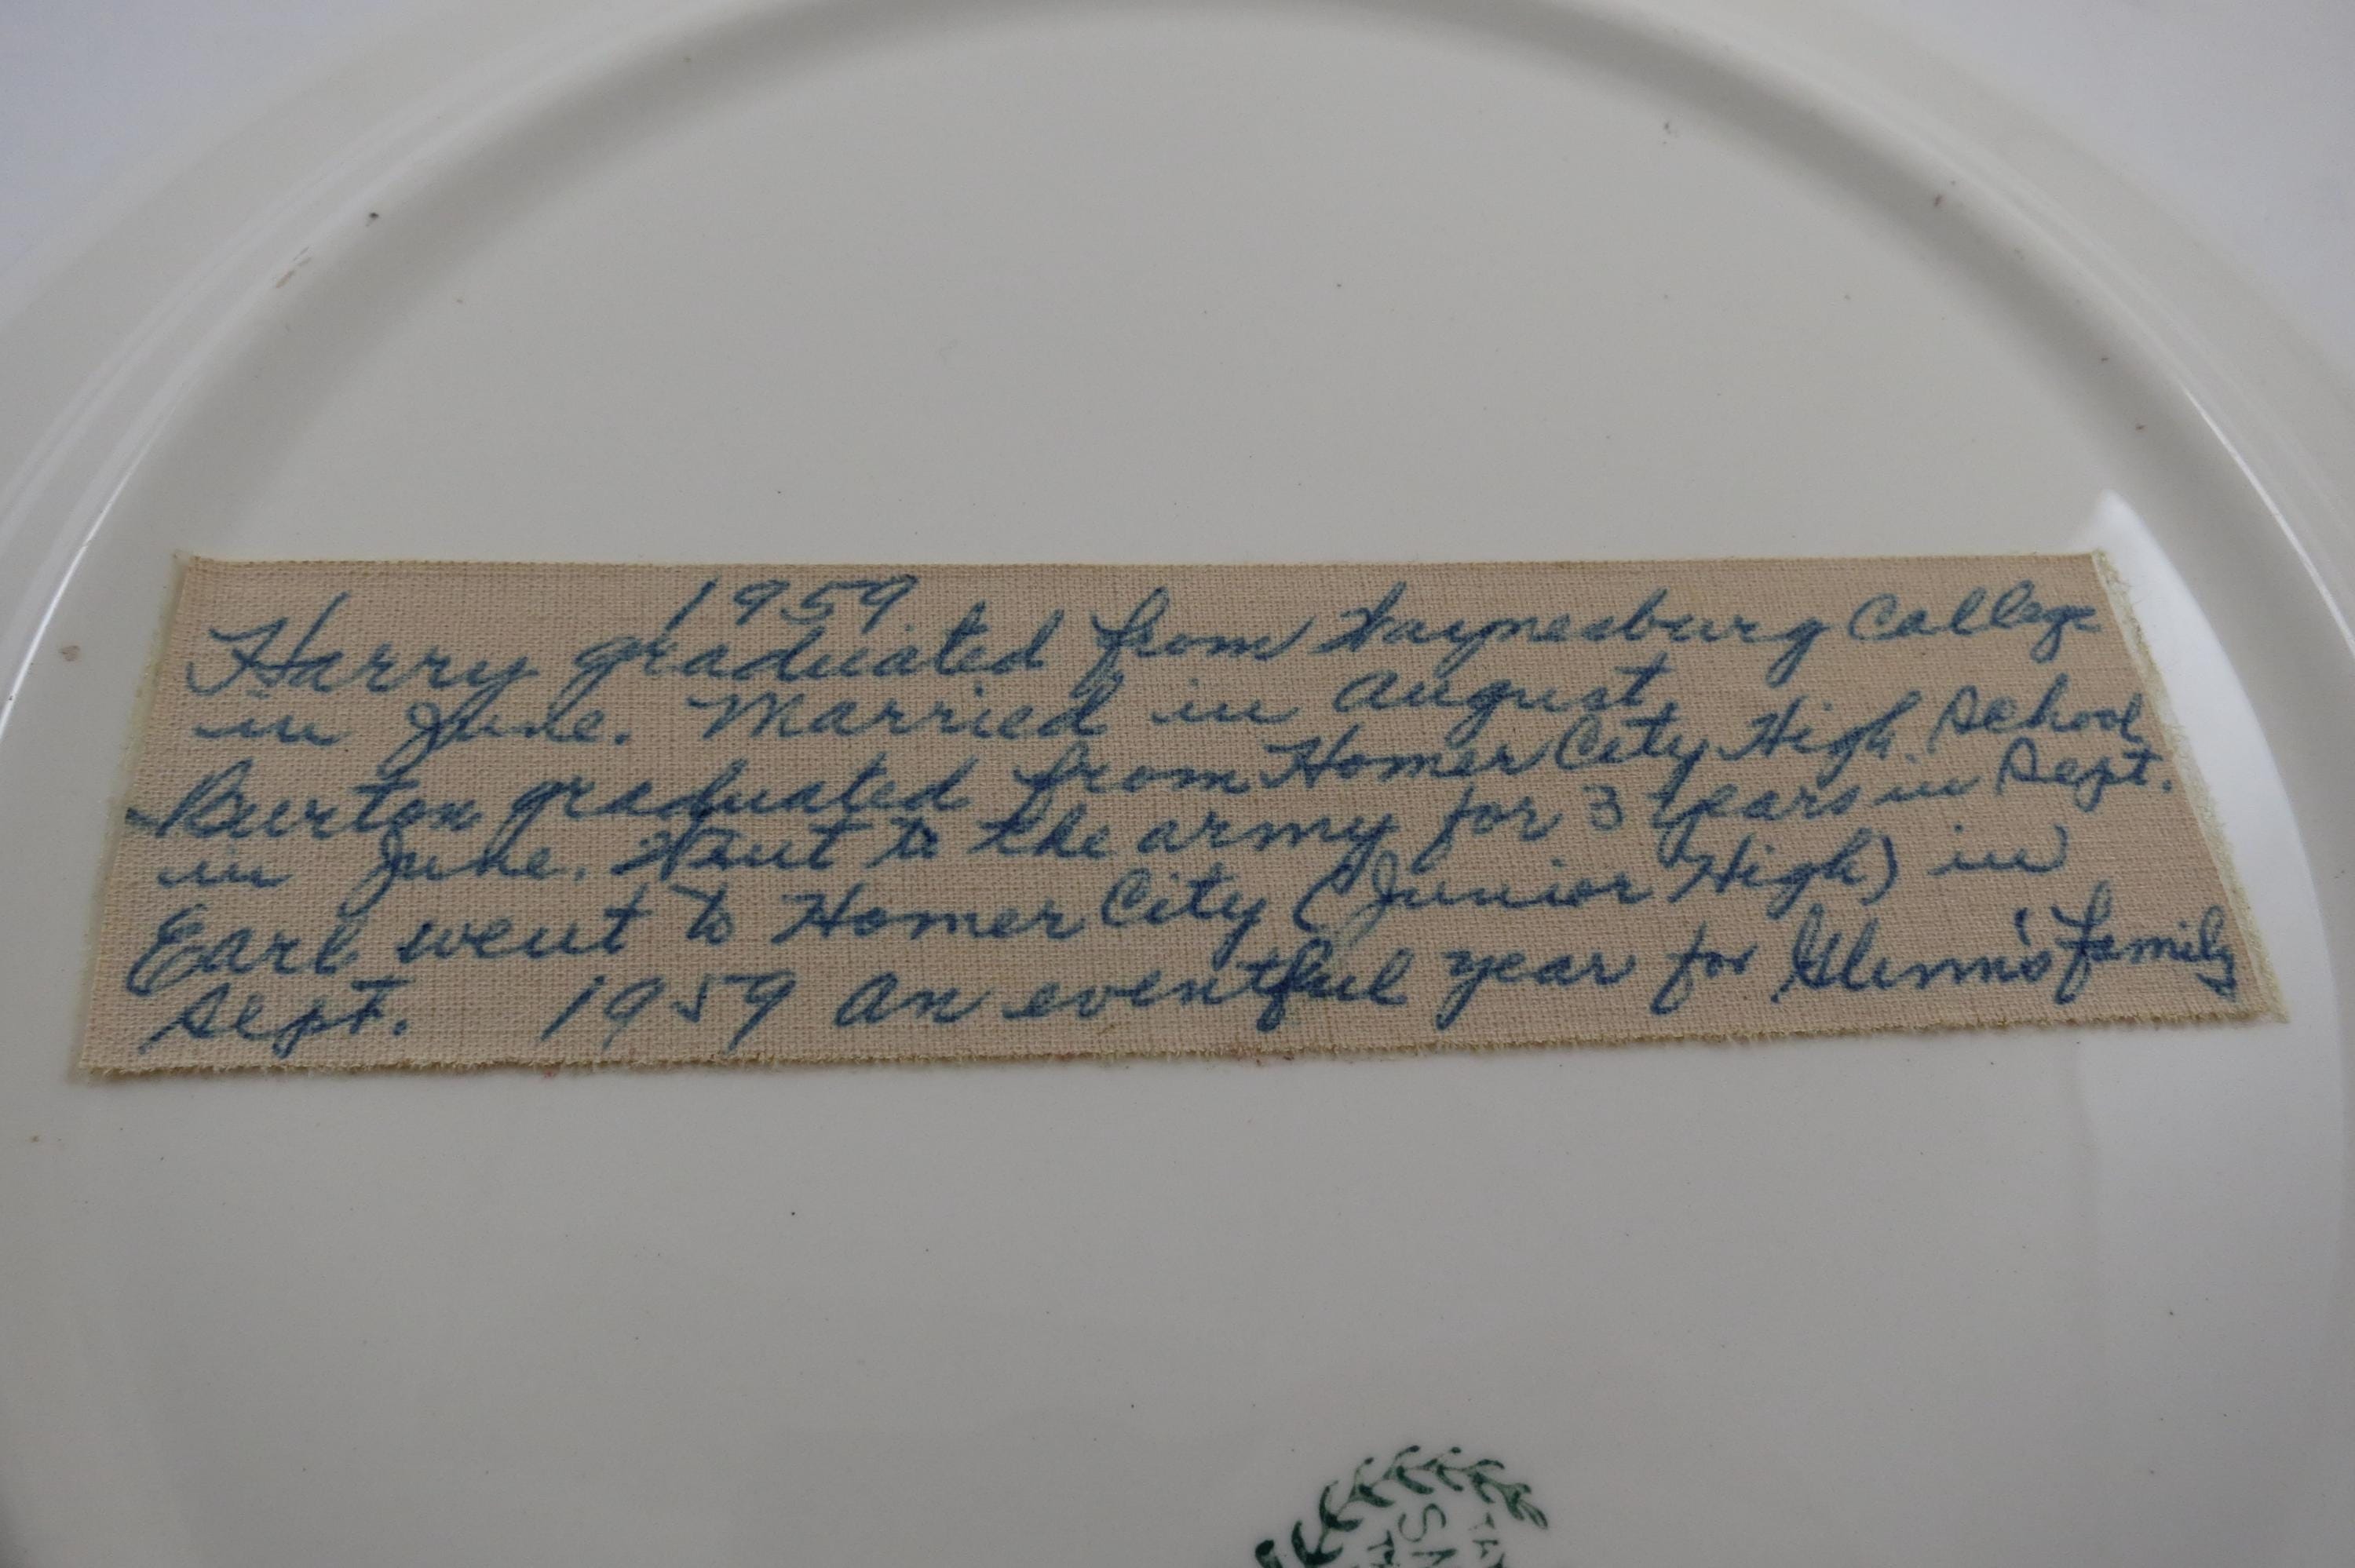 1959
Harry graduated from Waynesburg College
in June. Married in August
Burton graduated from Homer City High School
in June. Went to the army for 3 years in Sept.
Earl went to Homer City (Junior High) in
Sept. 1959 An eventful year for Glenn's family